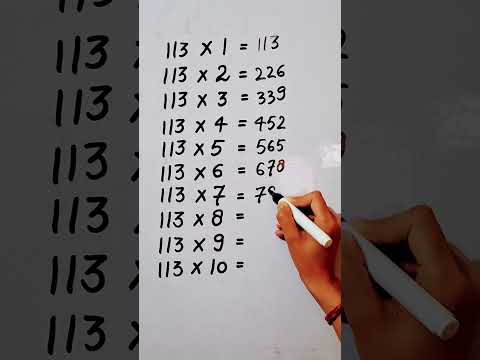 113 × 1 = 113
113 × 2 = 226
113 × 3 = 339
113 × 4 = 452
113 × 5 = 565
113 × 6 = 678
113 × 7 = 79
113 × 8 =
113 × 9 =
113 × 10 =